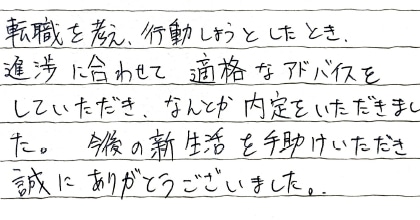 転職を考え、行動しようとしたとき、
進渉に合わせて 適格なアドバイスを
していただき、なんとか内定をいただきまし
た。 今後の新生活を手助けいただき
誠にありがとうございました。